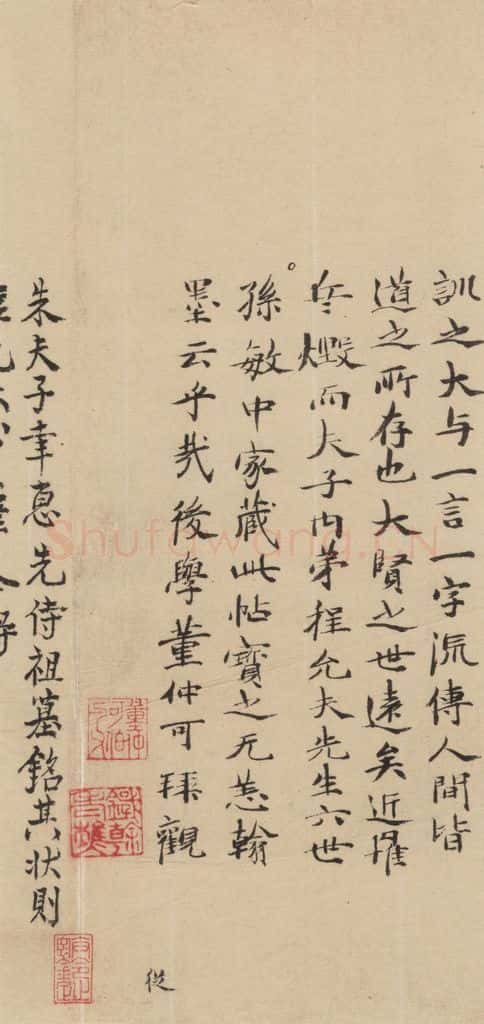 訓之大与一言一字流傳人間皆
道之所存也大賢之世遠矣近罹
兵燬而夫子内弟程允夫先生六世
孫敏中家藏此帖寶之无恙翰
墨云乎哉後學董仲可拜觀
從
朱夫子幸惠先侍祖墓銘其狀則
Shufawang.CN